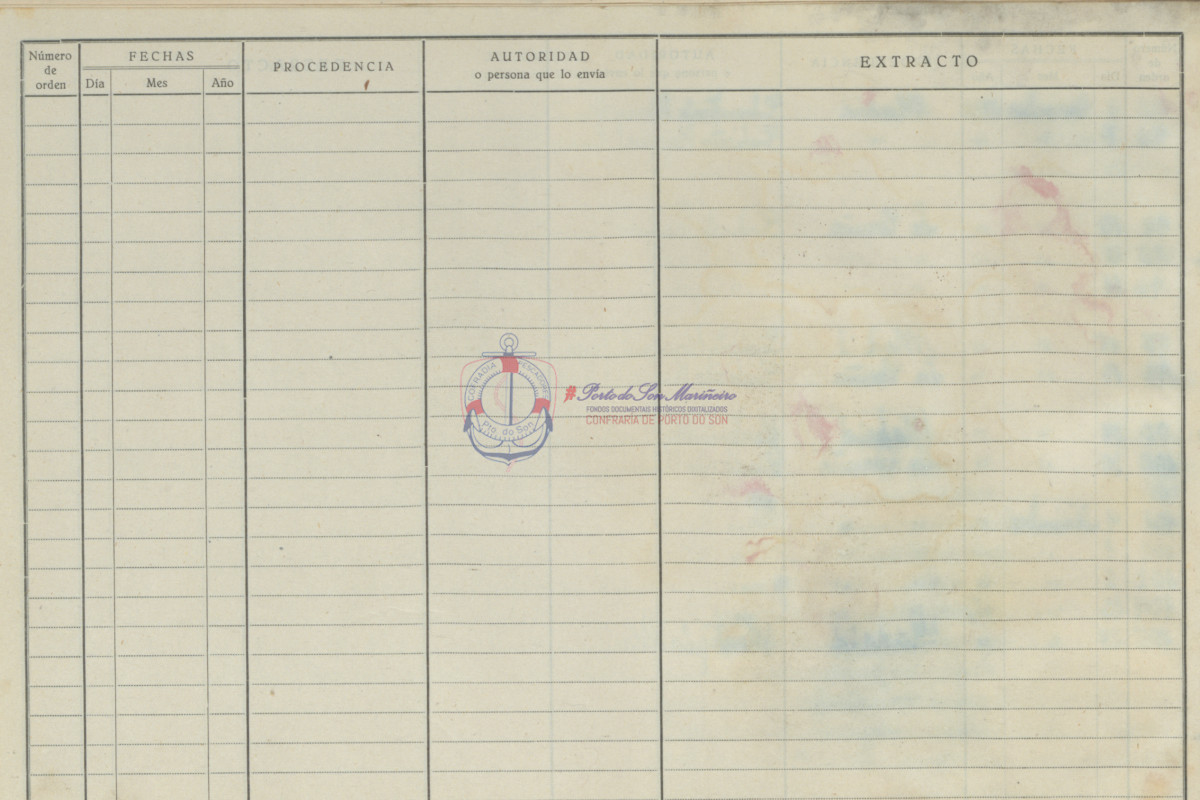 Número
de
orden
FECHAS
Día Mes Año
PROCEDENCIA
AUTORIDAD
o persona que lo envía
EXTRACTO
COFRADIA PESCADORES
Pto. do Son
#Porto do Son Mariñeiro
FONDOS DOCUMENTAIS HISTÓRICOS DIXITALIZADOS
CONFRARÍA DE PORTO DO SON